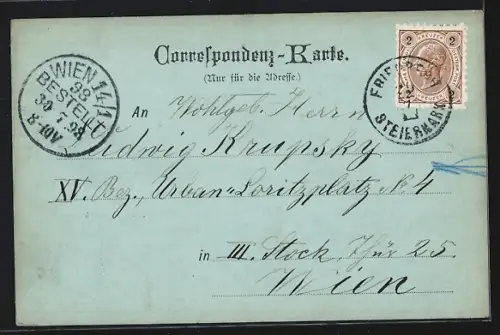 Correspondenz-Karte.
(Nur für die Adresse.)
WIEN 14/1
98
BESTELLT
30 7 98
8-10V
2 2
FRIED
STEIERMARK
An Wohlgeb. Herrn
Ludwig Krupsky
XV. Bez., Urban-Loritzplatz No 4
in III. Stock, Thür 25.
Wien